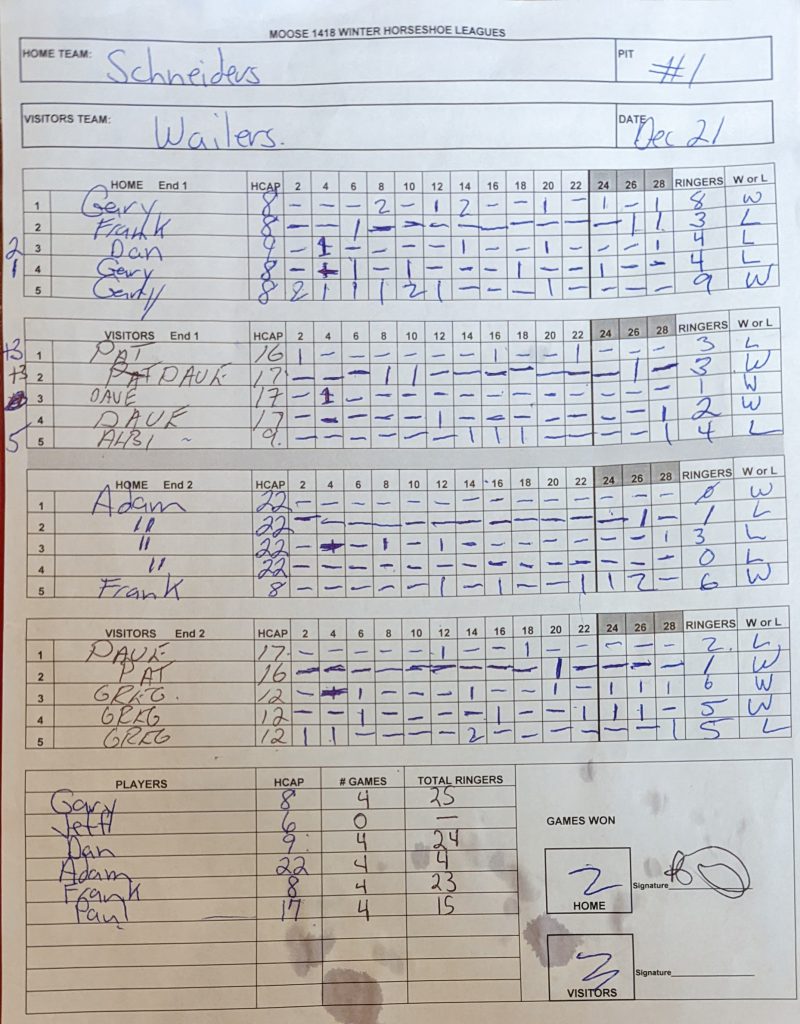 MOOSE 1418 WINTER HORSESHOE LEAGUES
HOME TEAM: Schneiders PIT #1
VISITORS TEAM: Wailers. DATE Dec 21
HOME End 1 HCAP 2 4 6 8 10 12 14 16 18 20 22 24 26 28 RINGERS W or L
1 Gary 8 – – – 2 – 1 2 – – 1 – 1 – 1 8 W
2 Frank 8 – – 1 – – – – – – – – – 1 1 3 L
2 3 Dan 9 – 1 – – – – 1 – – 1 – – – 1 4 L
1 4 Gary 8 – 1 – 1 – – – 1 – – 1 – – 4 L
5 Gary 8 2 1 1 1 2 1 – – – 1 – – – – 9 W
VISITORS End 1 HCAP 2 4 6 8 10 12 14 16 18 20 22 24 26 28 RINGERS W or L
+3 1 PAT 16 1 – – – – – – 1 – – 1 – – – 3 L
+3 2 DAVE 17 – – – 1 1 – – – – – – – 1 – 3 W
3 DAVE 17 – 1 – – – – – – – – – – – – 1 W
4 DAVE 17 – – – – – 1 – – – – – – – 1 2 W
5 5 ALBI ~ 9. – – – – – – 1 1 1 – – – – 1 4 L
HOME End 2 HCAP 2 4 6 8 10 12 14 16 18 20 22 24 26 28 RINGERS W or L
1 Adam 22 – – – – – – – – – – – – – – 0 W
2 " 22 – – – – – – – – – – – – 1 – 1 L
3 " 22 – – 1 – 1 – – – – – – – 1 3 L
4 " 22 – – – – – – – – – – – – – – 0 L
5 Frank 8 – – – – – 1 – 1 – – 1 1 2 – 6 W
VISITORS End 2 HCAP 2 4 6 8 10 12 14 16 18 20 22 24 26 28 RINGERS W or L
1 DAVE 17 – – – – – 1 – – 1 – – – – – 2 L
2 PAT 16 – – – – – – – – – 1 – – – – 1 W
3 GREG. 12 – 1 – – – 1 – – 1 – 1 1 1 6 W
4 GREG 12 – – 1 – – – – 1 – – 1 1 1 – 5 W
5 GREG 12 1 1 – – – – 2 – – – – – – 1 5 L
PLAYERS HCAP # GAMES TOTAL RINGERS
Gary 8 4 25
Jeff 6 0 —
Dan 9 4 24
Adam 22 4 4
Frank 8 4 23
Paul 17 4 15
GAMES WON
2 HOME Signature
3 VISITORS Signature